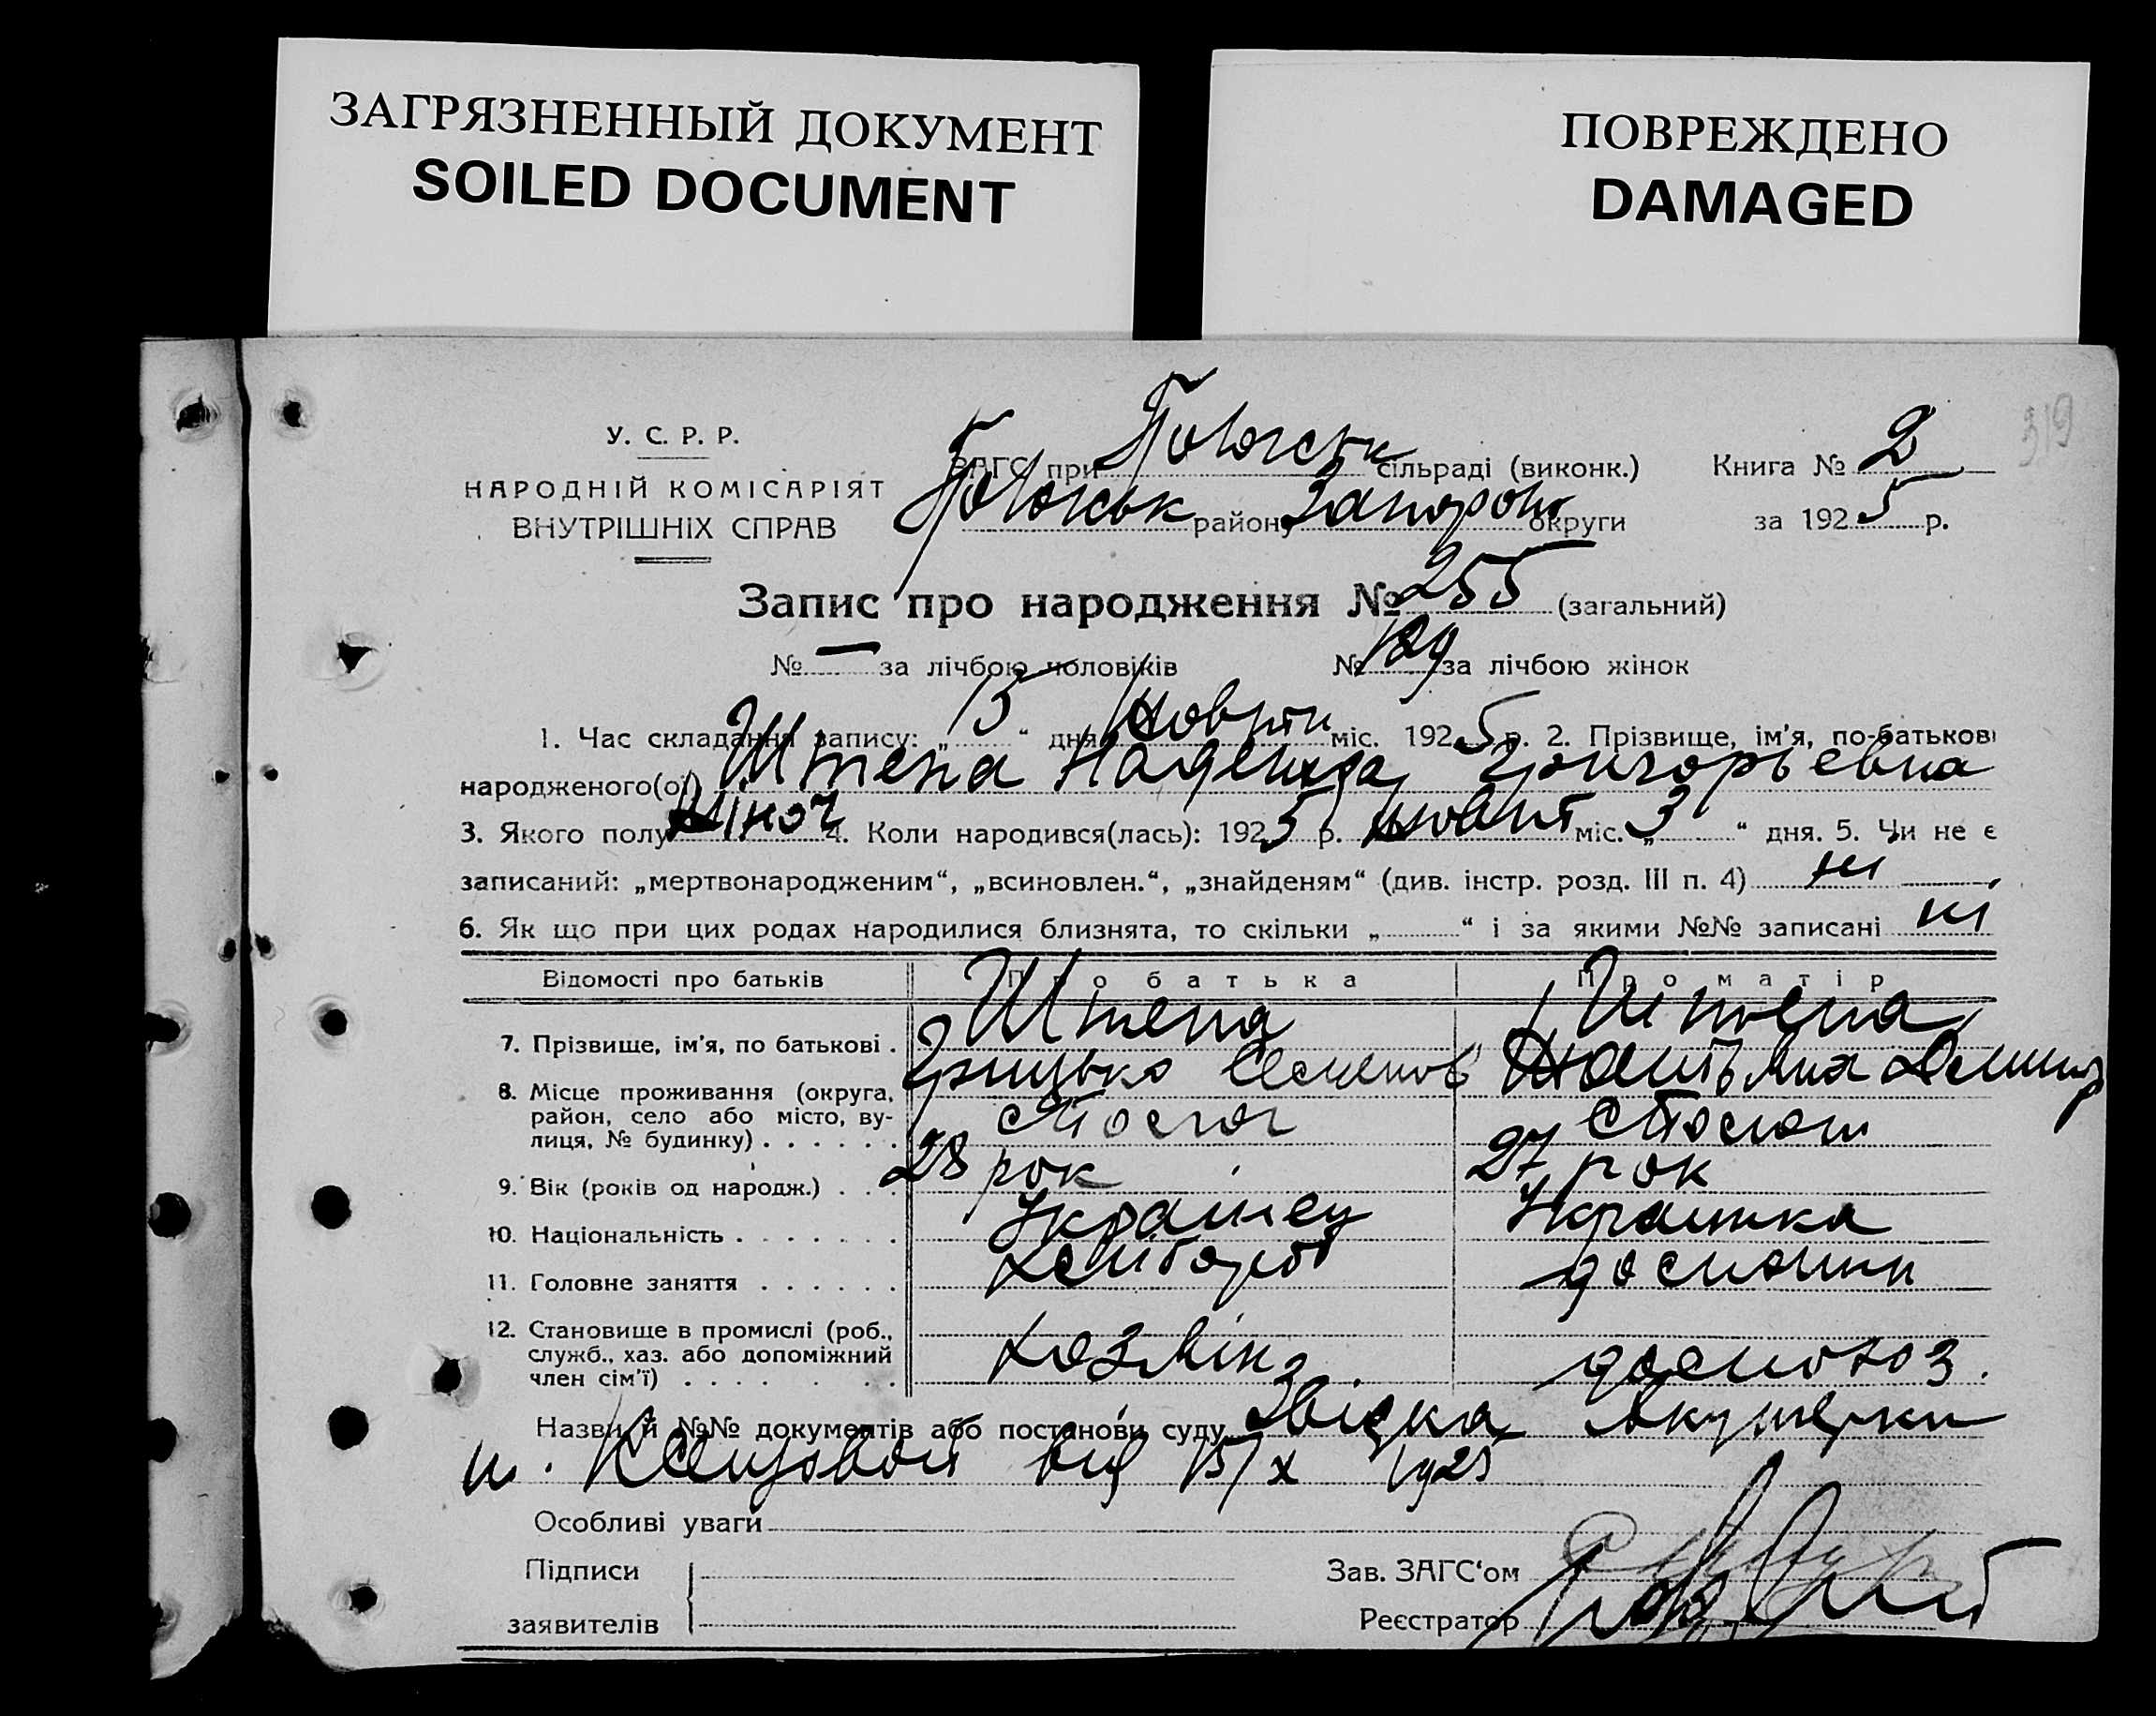 ЗАГРЯЗНЕННЫЙ ДОКУМЕНТ
SOILED DOCUMENT
ПОВРЕЖДЕНО
DAMAGED
319
У. С. Р. Р.
НАРОДНІЙ КОМІСАРІЯТ
ВНУТРІШНІХ СПРАВ
ЗАГС при сільраді (виконк.) Книга № 2
району Запорож округи за 1925 р.
Запис про народження № 255 (загальний)
№ — за лічбою чоловіків № 129 за лічбою жінок
1. Час складання запису: „ 15 “ дня Жовтн міс. 1925 р. 2. Прізвище, ім'я, по-батькові
народженого(ої) Штепа Надежда Григорьевна
3. Якого полу жіноч 4. Коли народився(лась): 1925 р. жовтн міс. „ 3 “ дня. 5. Чи не є
записаний: „мертвонародженим“, „всиновлен.“, „знайденям“ (див. інстр. розд. III п. 4) ні
6. Як що при цих родах народилися близнята, то скільки „ “ і за якими №№ записані ні
Відомості про батьків Про батька Про матір
7. Прізвище, ім'я, по батькові . Штепа Штепа
Грицько Семенов
8. Місце проживання (округа,
район, село або місто, ву-
лиця, № будинку) . . . . . .
9. Вік (років од народж.) . . . 28 рок 27 рок
10. Національність . . . . . . . Українец Українка
11. Головне заняття . . . . . . хлібороб домашн
12. Становище в промислі (роб.,
служб., хаз. або допоміжний
член сім'ї) . . . . . . . хозяін домохоз.
Назви й №№ документів або постанови суду Звідка Акушерки
від 15/X 1925
Особливі уваги
Підписи
заявителів
Зав. ЗАГС'ом
Реєстратор